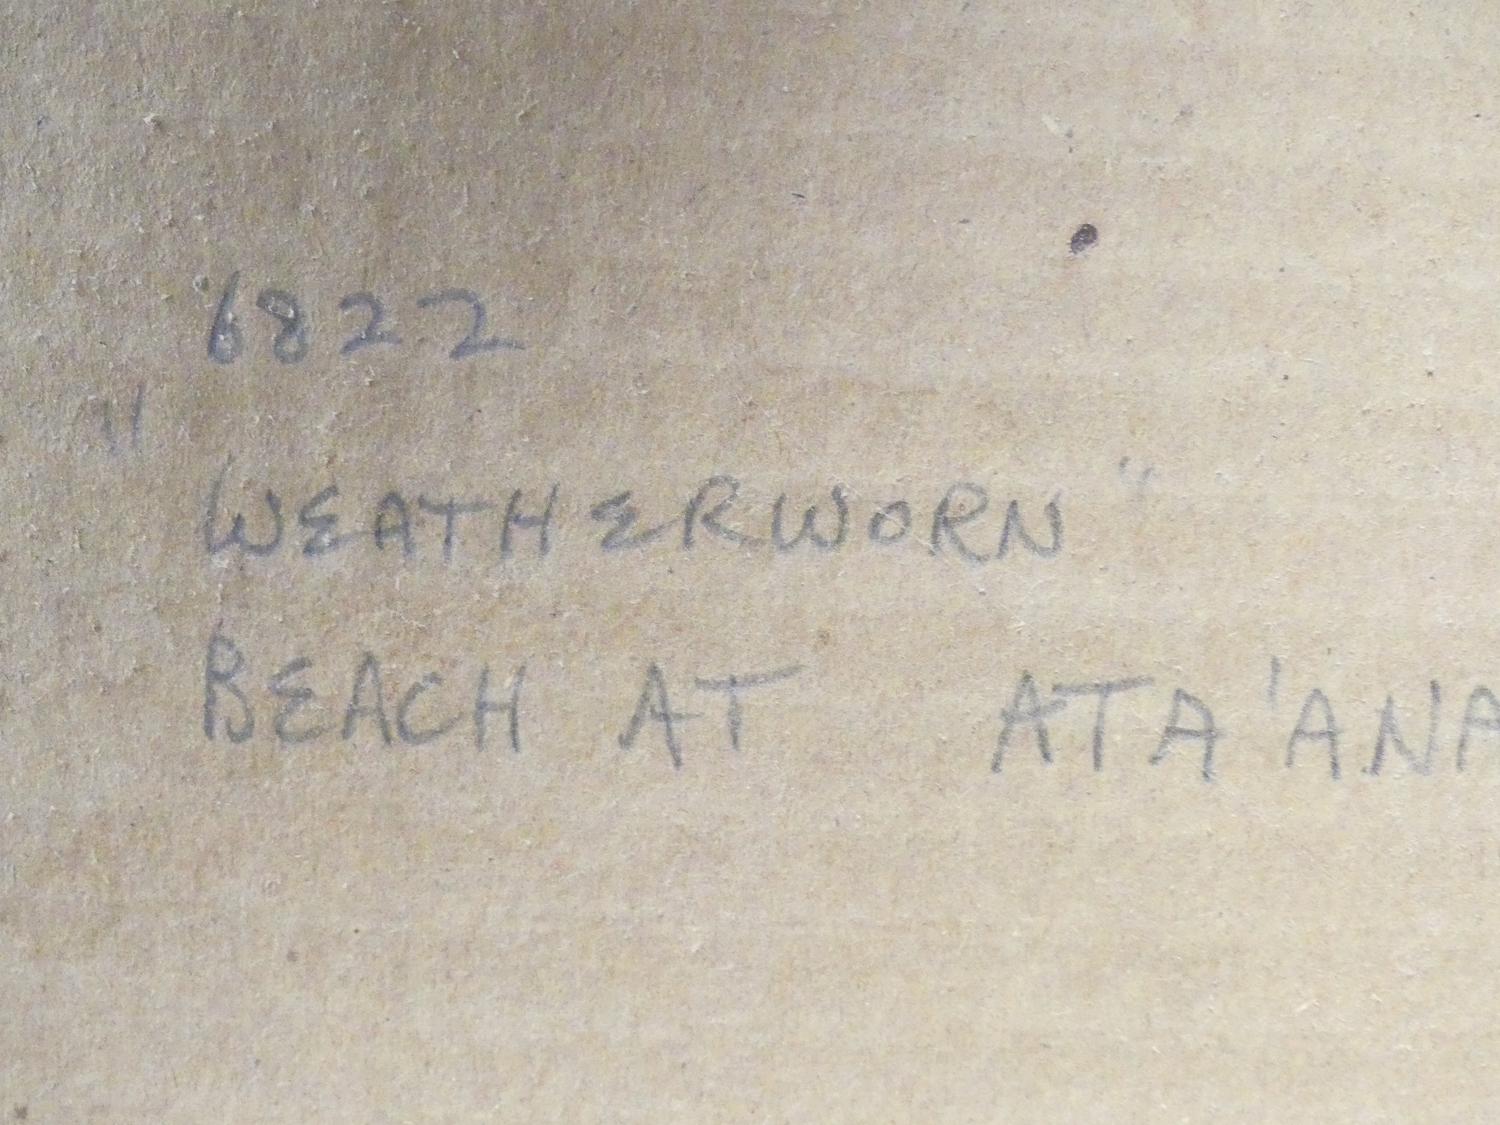 6822
"WEATHERWORN"
BEACH AT ATA'ANA